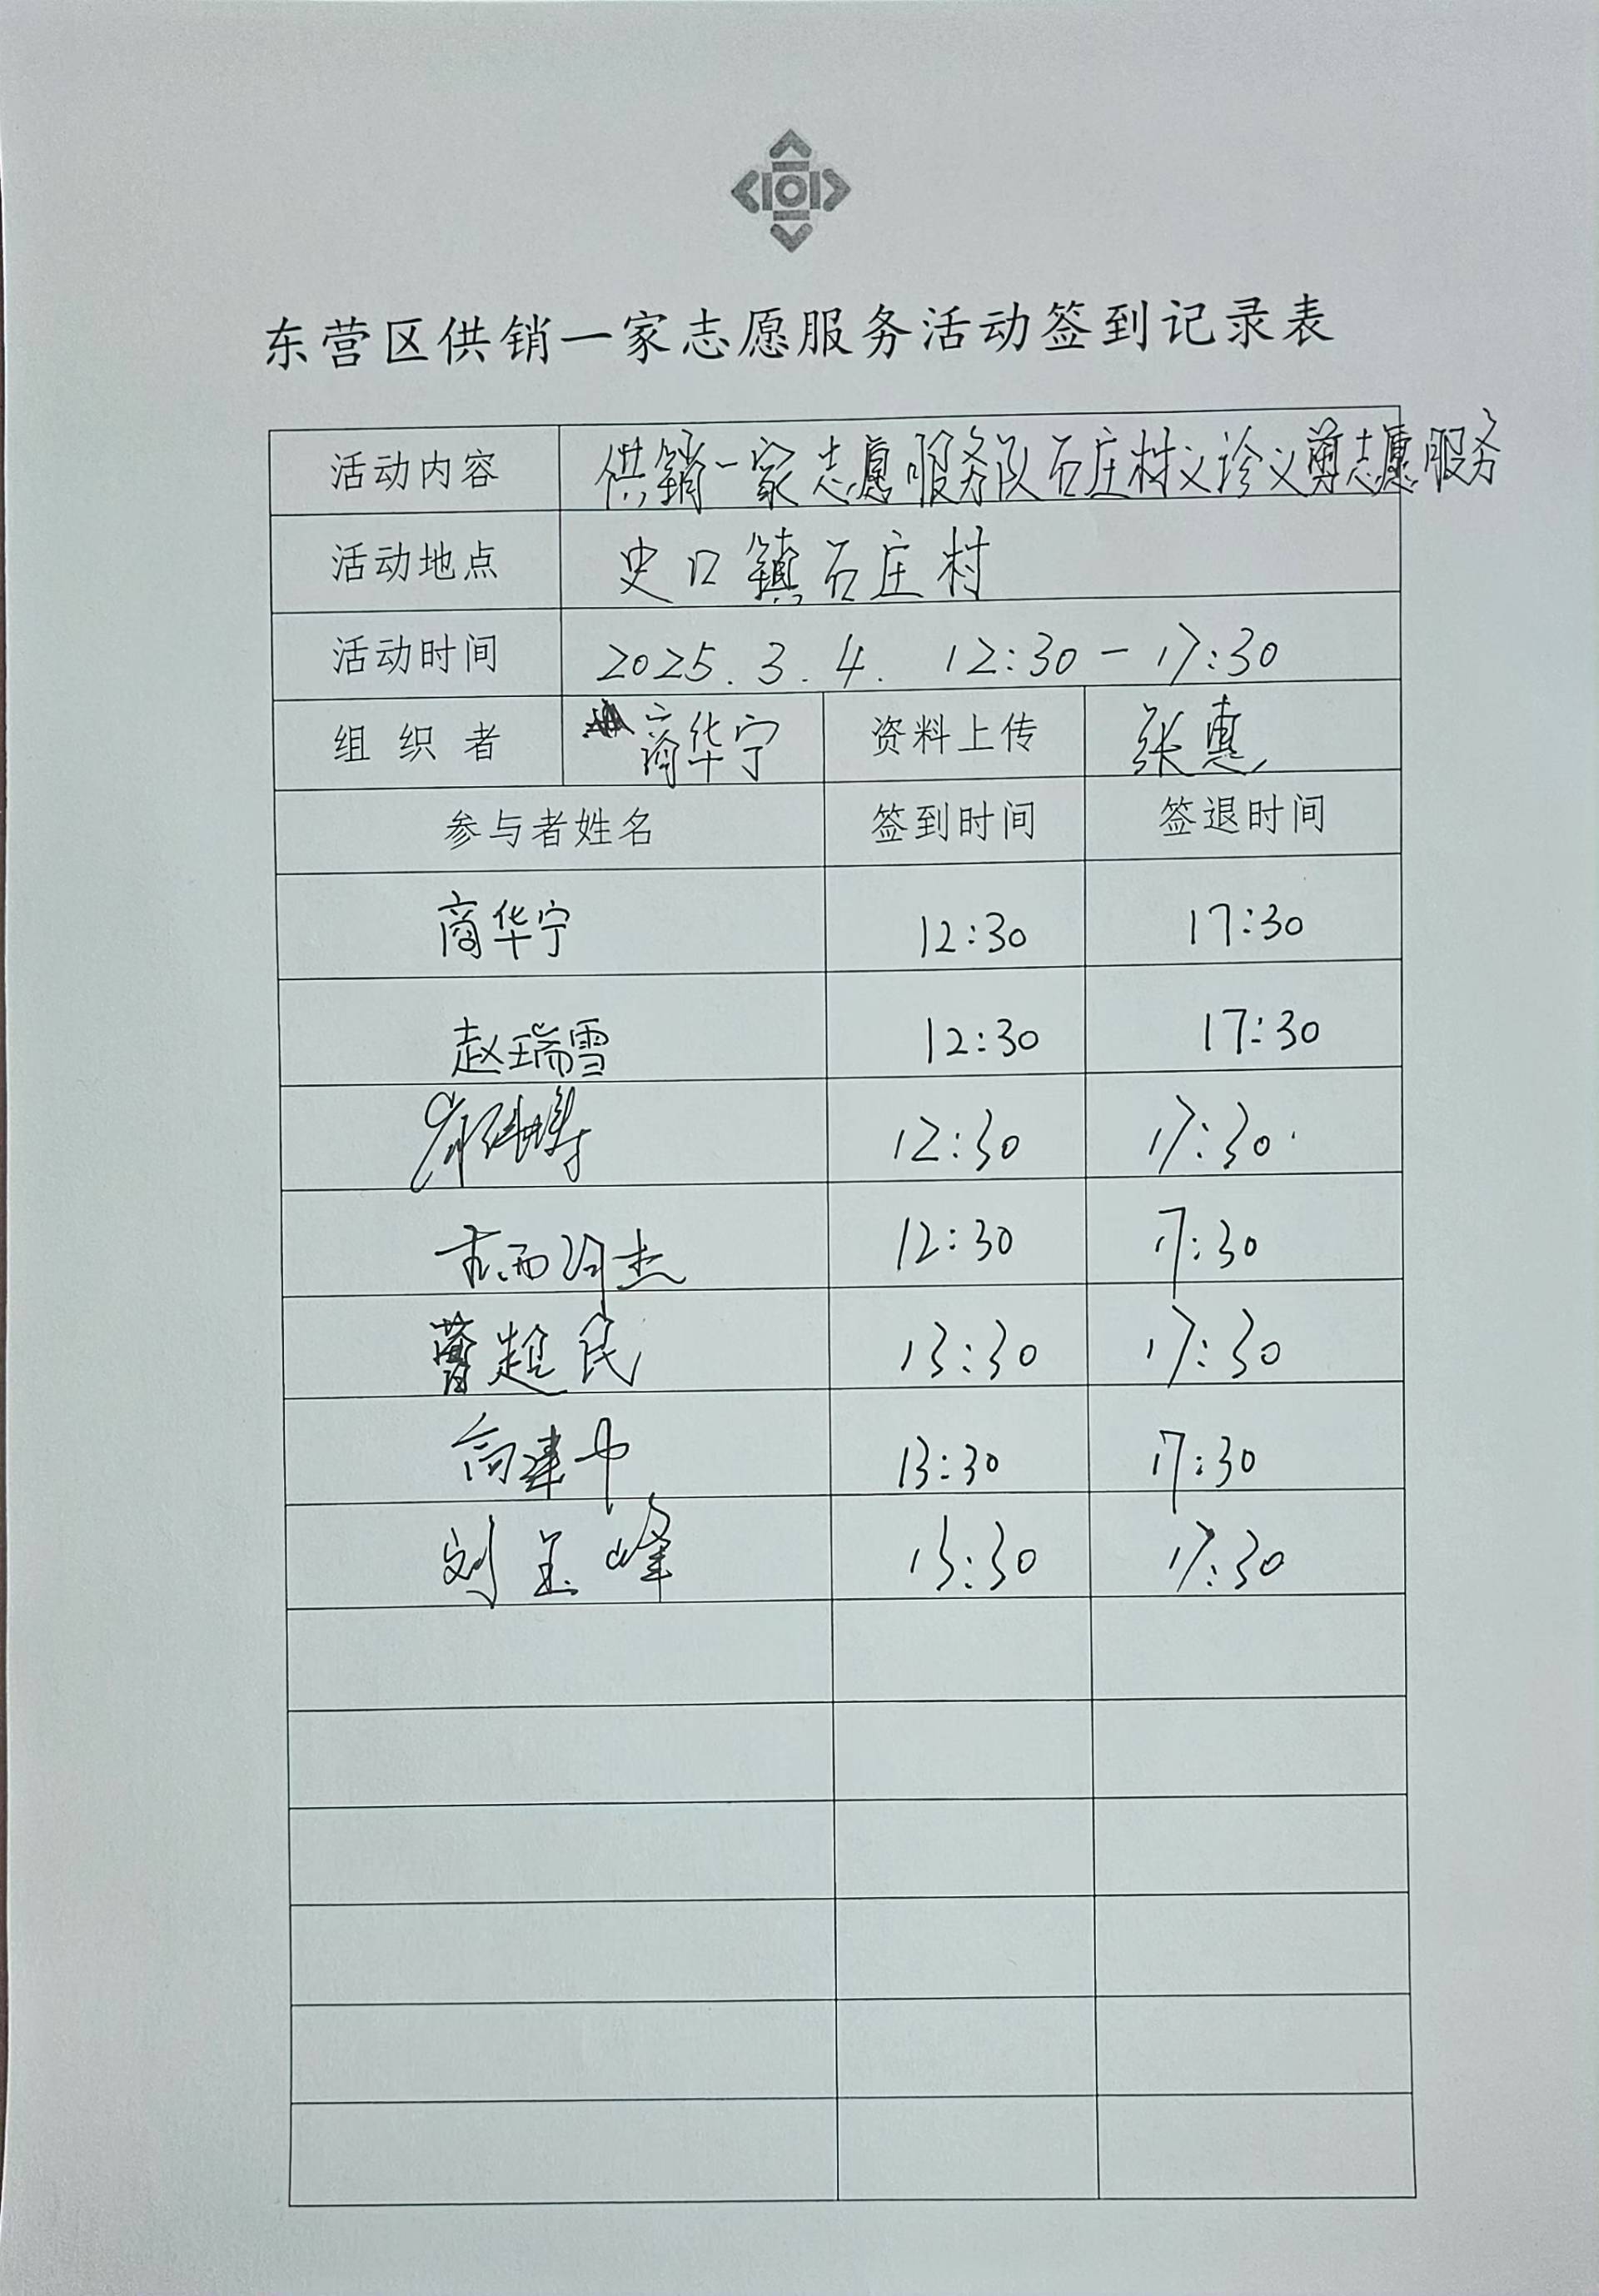 东营区供销一家志愿服务活动签到记录表
活动内容 供销一家志愿服务队石庄村义诊义剪志愿服务
活动地点 史口镇石庄村
活动时间 2025.3.4. 12:30-17:30
组织者 商华宁 资料上传 张惠
参与者姓名 签到时间 签退时间
商华宁 12:30 17:30
赵瑞雪 12:30 17:30
12:30 17:30
杰 12:30 17:30
超民 13:30 17:30
高建中 13:30 17:30
刘玉峰 13:30 17:30